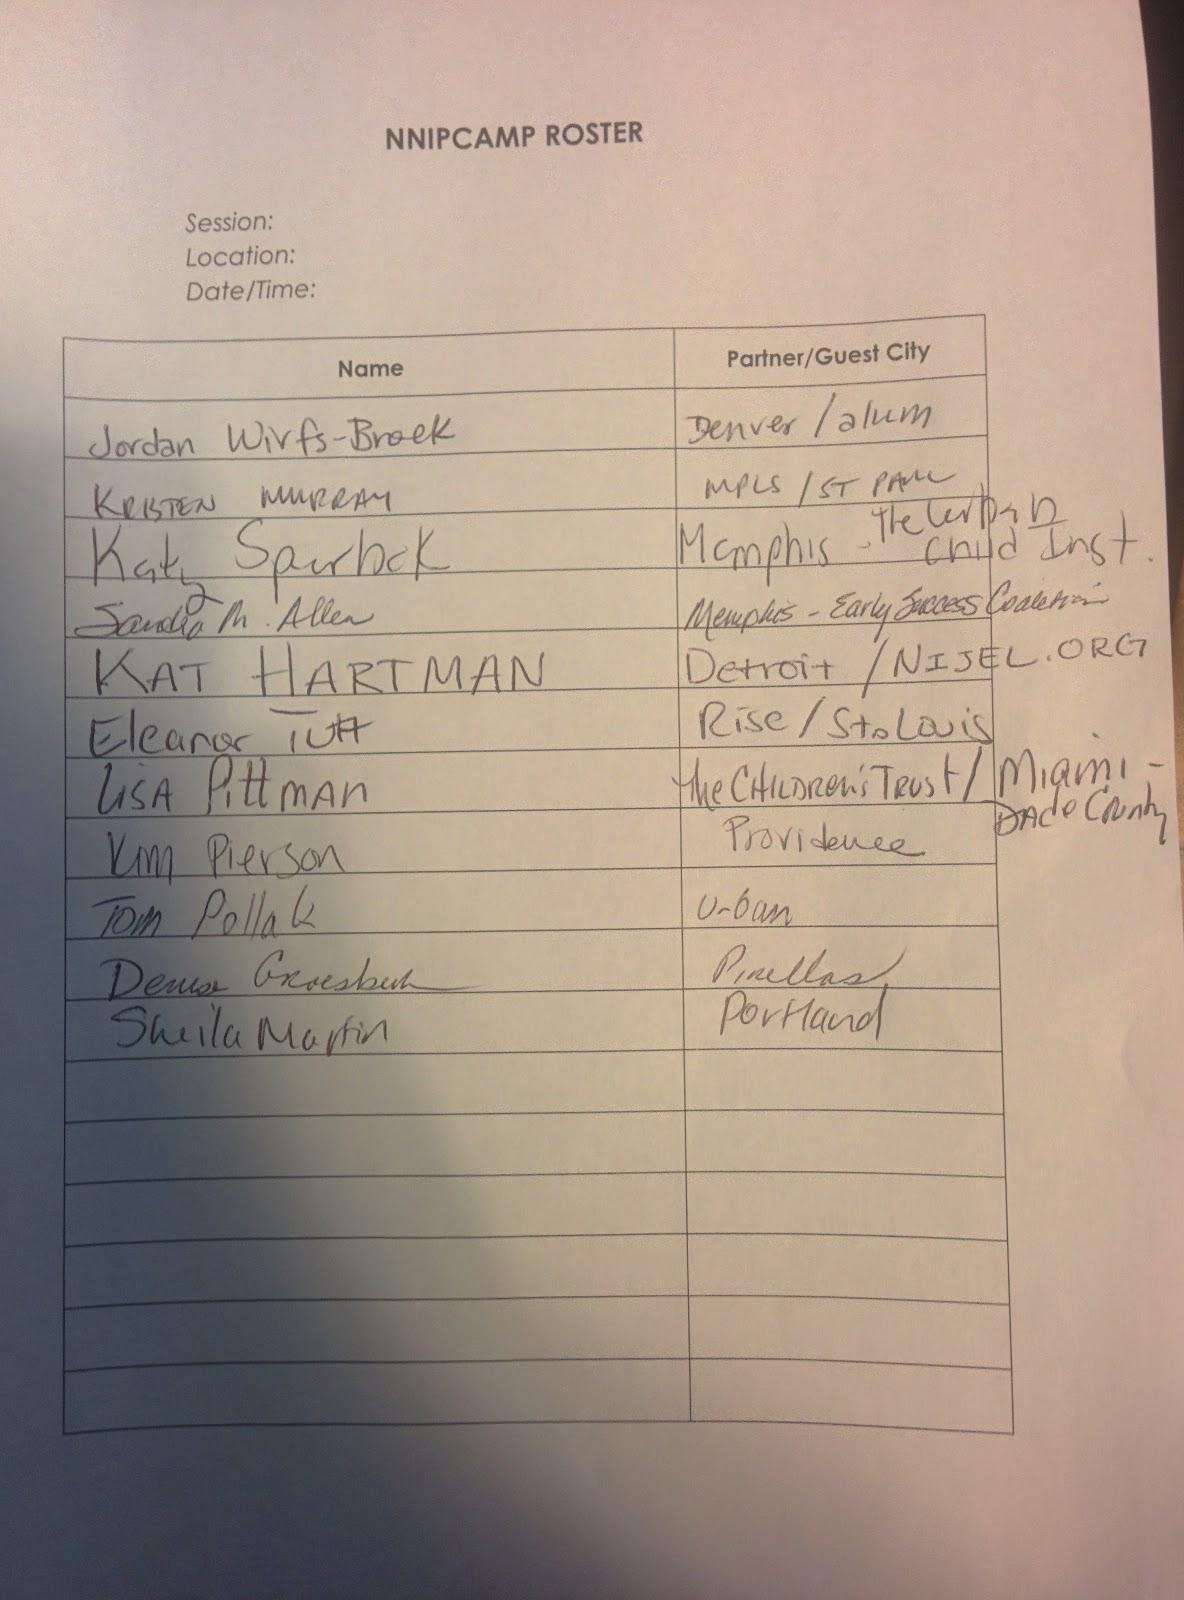 NNIPCAMP ROSTER
Session:
Location:
Date/Time:
Name Partner/Guest City
Jordan Wirfs-Brock Denver / alum
KRISTEN MURRAY MPLS / ST PAUL
Katy Spurlock Memphis - The Urban Child Inst.
Sandra M. Allen Memphis - Early Success Coalition
KAT HARTMAN Detroit / NIJEL.ORG
Eleanor Tutt Rise / St. Louis
LISA PITTMAN the CHILDREN'S TRUST / Miami - DADE County
Kim Pierson Providence
Tom Pollak Urban
Denise Groesbeck Pinellas
Sheila Martin Portland